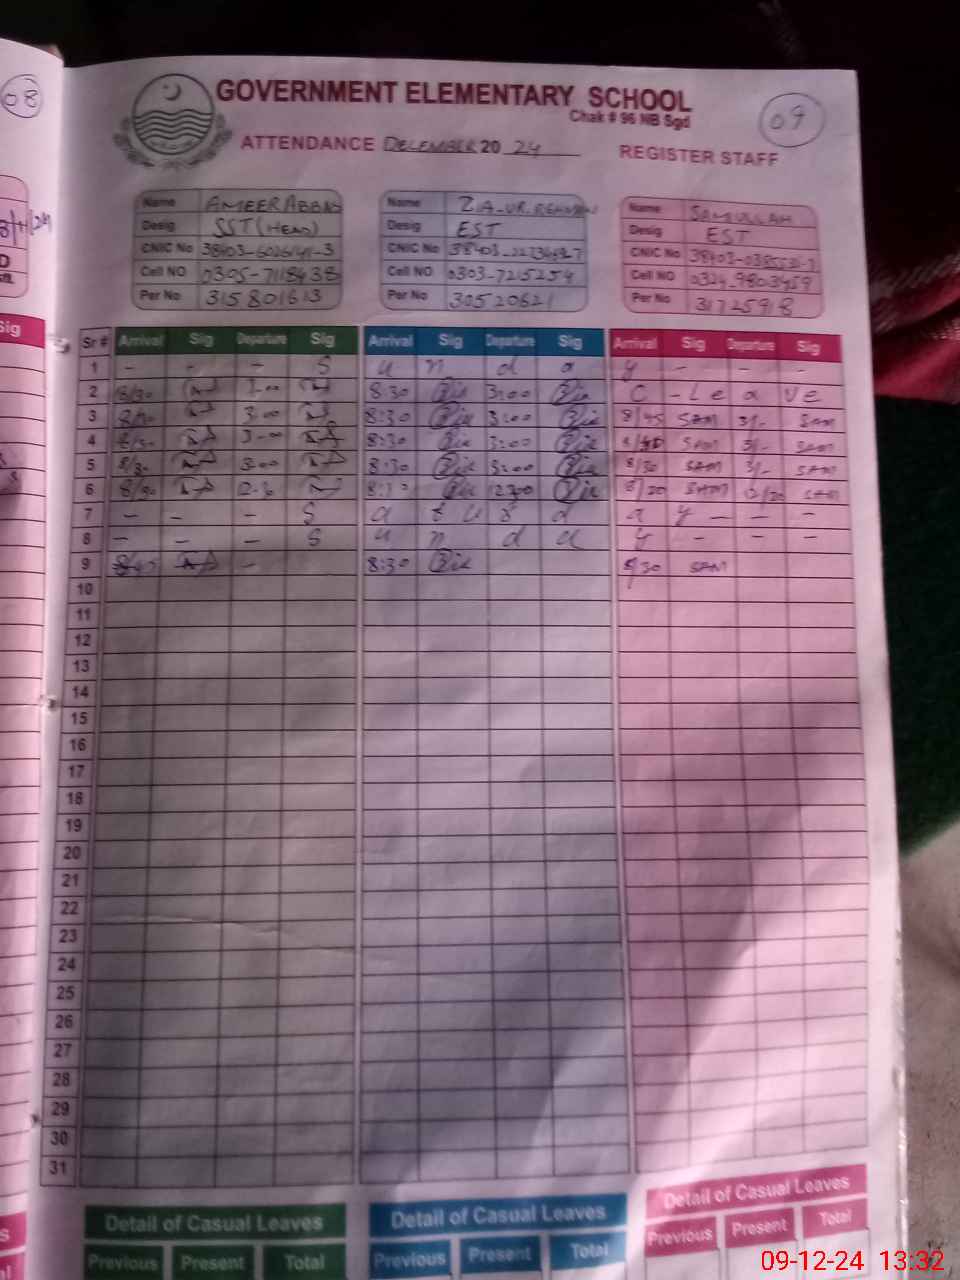 08
GOVERNMENT ELEMENTARY SCHOOL
Chak # 96 NB Sgd
09
ATTENDANCE DECEMBER 20 24 REGISTER STAFF
Name AMEER ABBAS Name Z.A-UR.REHMAN Name SAMIULLAH
Desig SST (HEAD) Desig EST Desig EST
CNIC No CNIC No CNIC No
Cell NO 0305-7118438 Cell NO 0303-7215254 Cell NO 0324-9803459
Per No 315801613 Per No 30520621 Per No 31725918
Sig
Sr # Arrival Sig Departure Sig Arrival Sig Departure Sig Arrival Sig Departure Sig
1 - - - S u n d a y - - -
2 8/30 3-00 8:30 Zia 3:00 Zia C - Le a ve
3 3:00 8:30 Zia 3:00 Zia 8/45 SAM 3/- SAM
4 8/30 3-00 8:30 Zia 3:00 Zia SAM 3/- SAM
5 8/30 3:00 8:30 Zia 3:00 Zia 8/30 SAM 3/- SAM
6 8/30 12-30 Zia Zia 8/30 SAM 12/30 SAM
7 - - - S a t u r d a y - - -
8 - - S u n d a y - - -
9 - 8:30 Zia 8/30 SAM
10
11
12
13
14
15
16
17
18
19
20
21
22
23
24
25
26
27
28
29
30
31
Detail of Casual Leaves Detail of Casual Leaves Detail of Casual Leaves
Previous Present Total Previous Present Total Previous Present Total
09-12-24 13:32